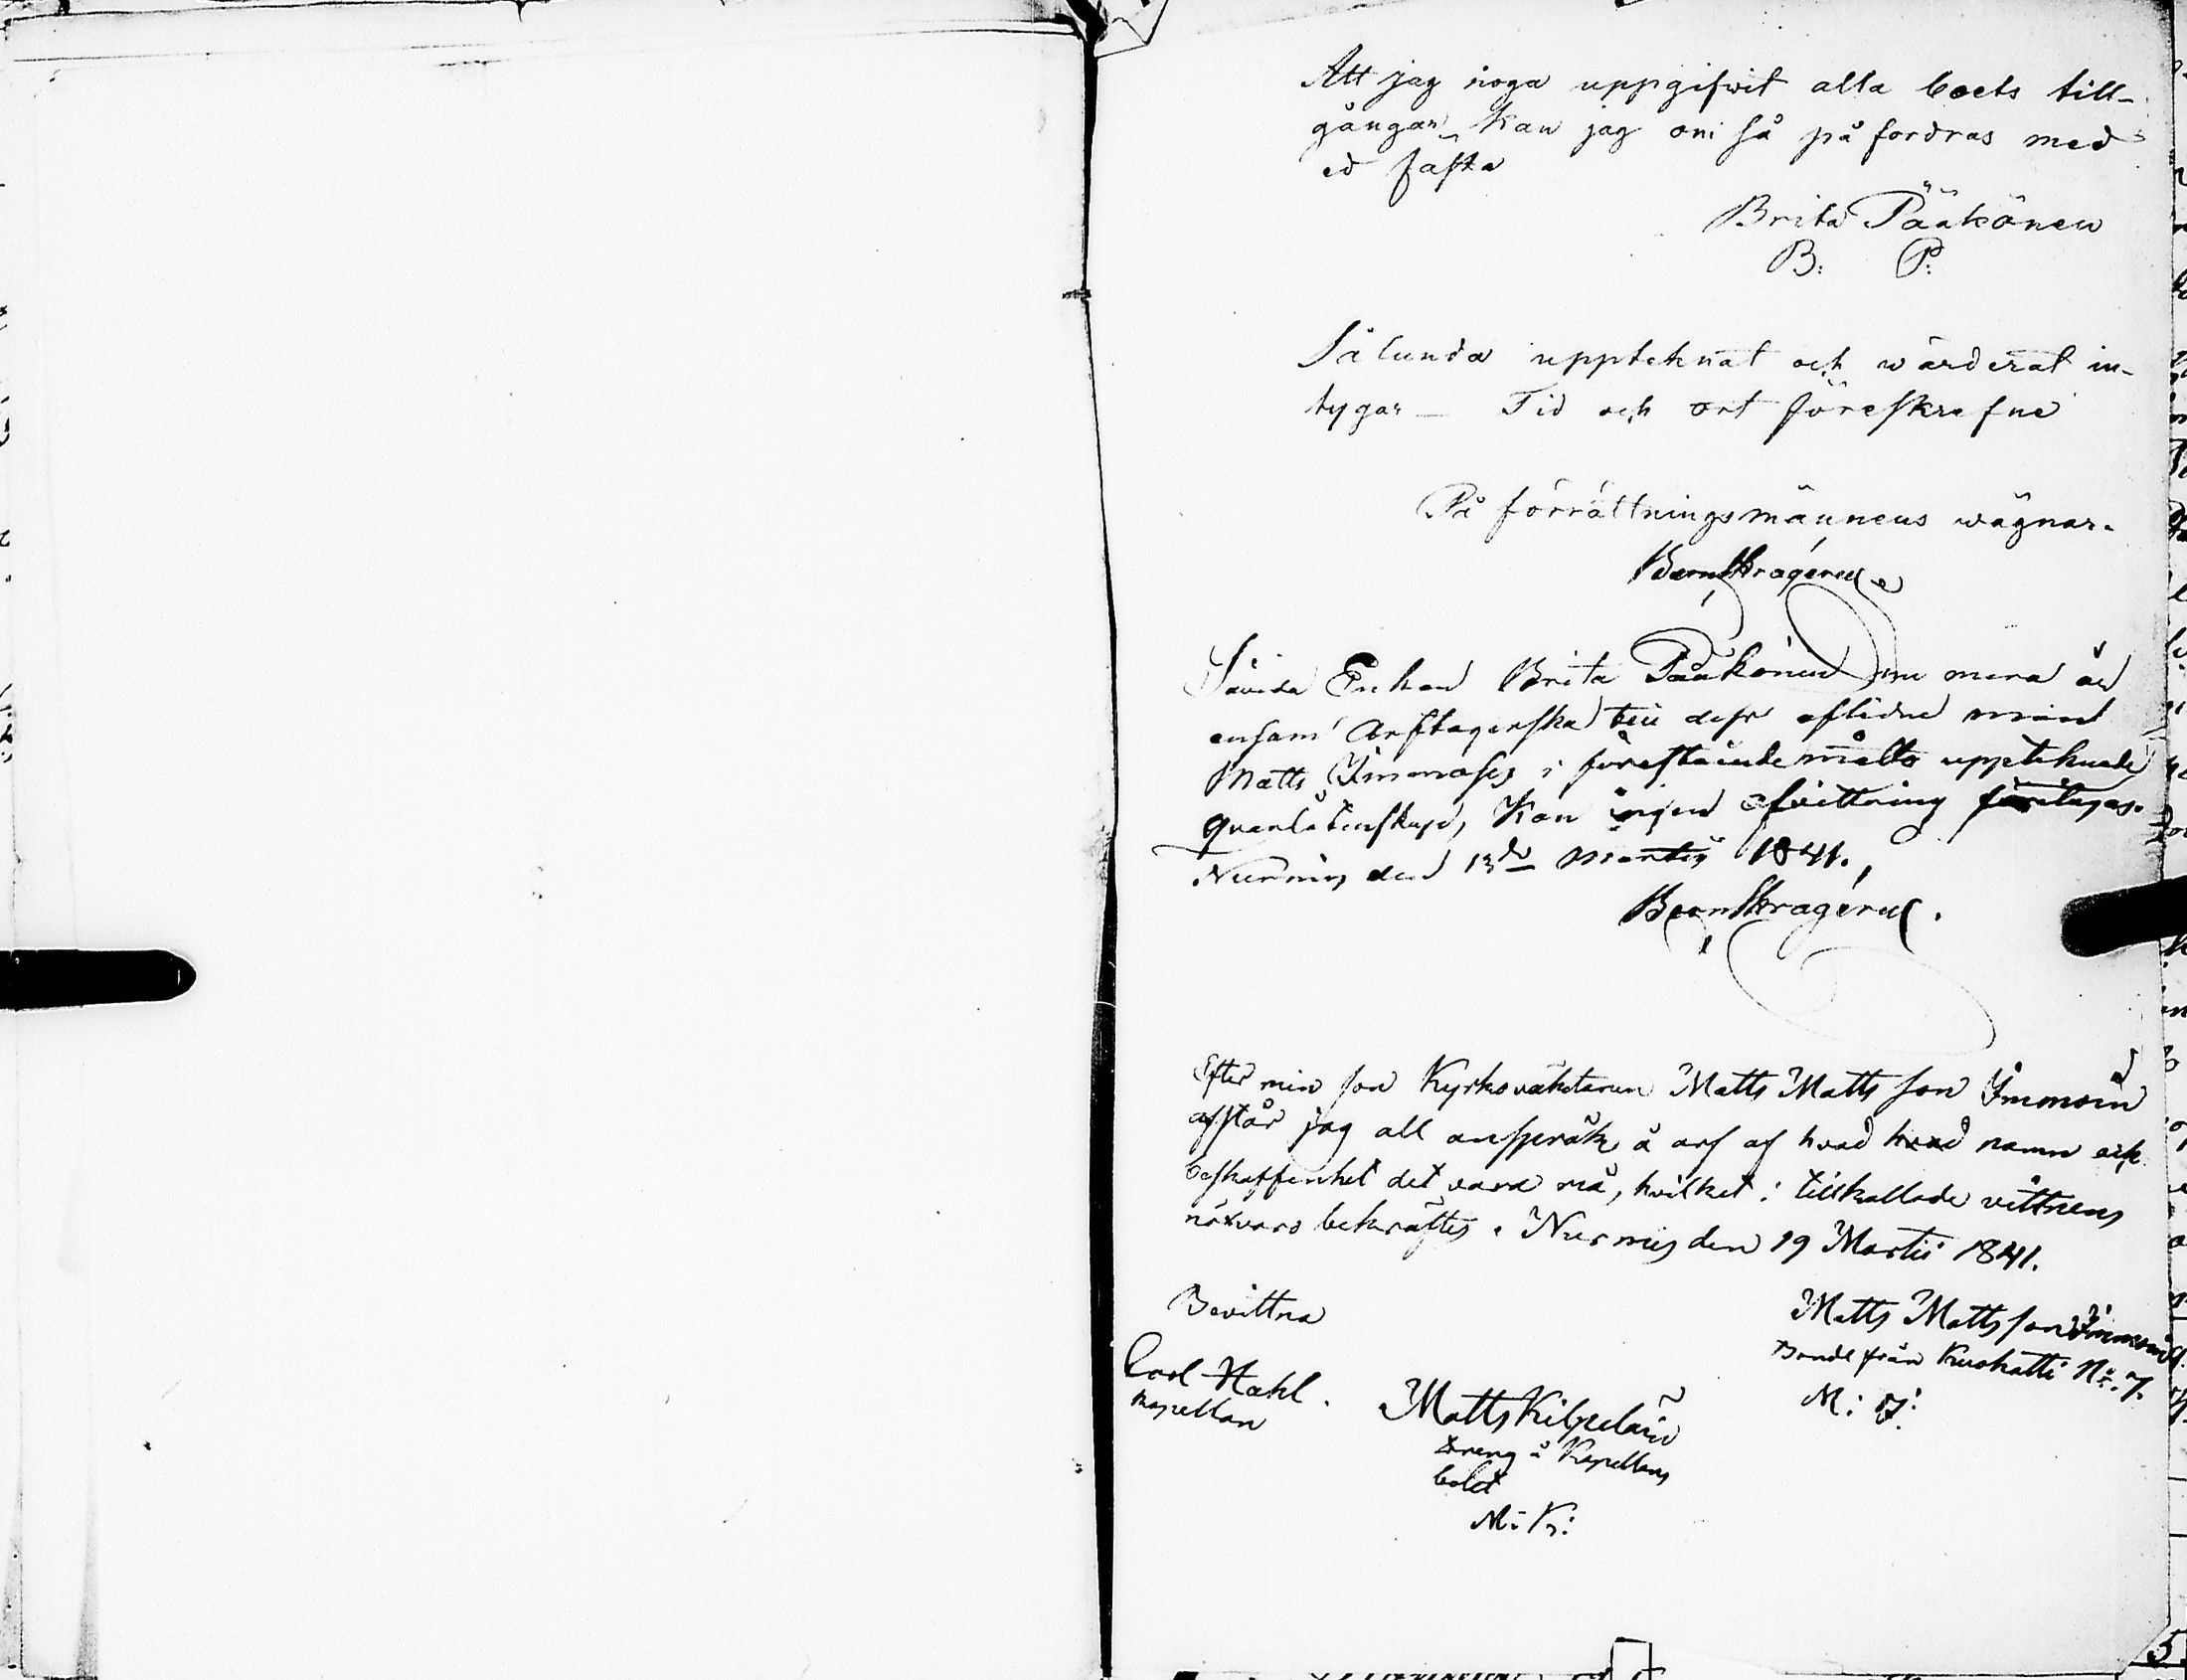 Att jag noga uppgifwit alla boets till-
gångar kan jag om så på fordras med
ed fästa
Brita Pääkönen
B: P:
Sålunda uppteknat och wärderat in-
tygar _ Tid och ort föreskrefne
På förrättningsmännens wägnar.
Såvida Enkan Brita Pääkönen nu mera är
ensam Arftagerska till dess aflidne man
Matts Immoses i förestående måtto uppteknade
qvarlåtenskap, Kan ingen afvittring företagas.
Nurmis den 13de Martii 1841.
Efter min son Kyrkovaktaren Matts Matts son Immoin
afstår jag all anspråk å arf af hvad hvad namn och
beskaffenhet det vara må, hvilket i tillkallade vittnens
närvaro bekräftes. Nurmis den 19 Martii 1841.
Bevittna
Matts Matts son Immoin
Bonde från Kuohatti No. 7.
M: I:
Carl Hahl.
Kapellan
Matts Kilpeläin
Dreng å Kapellans
bolet
M: K: